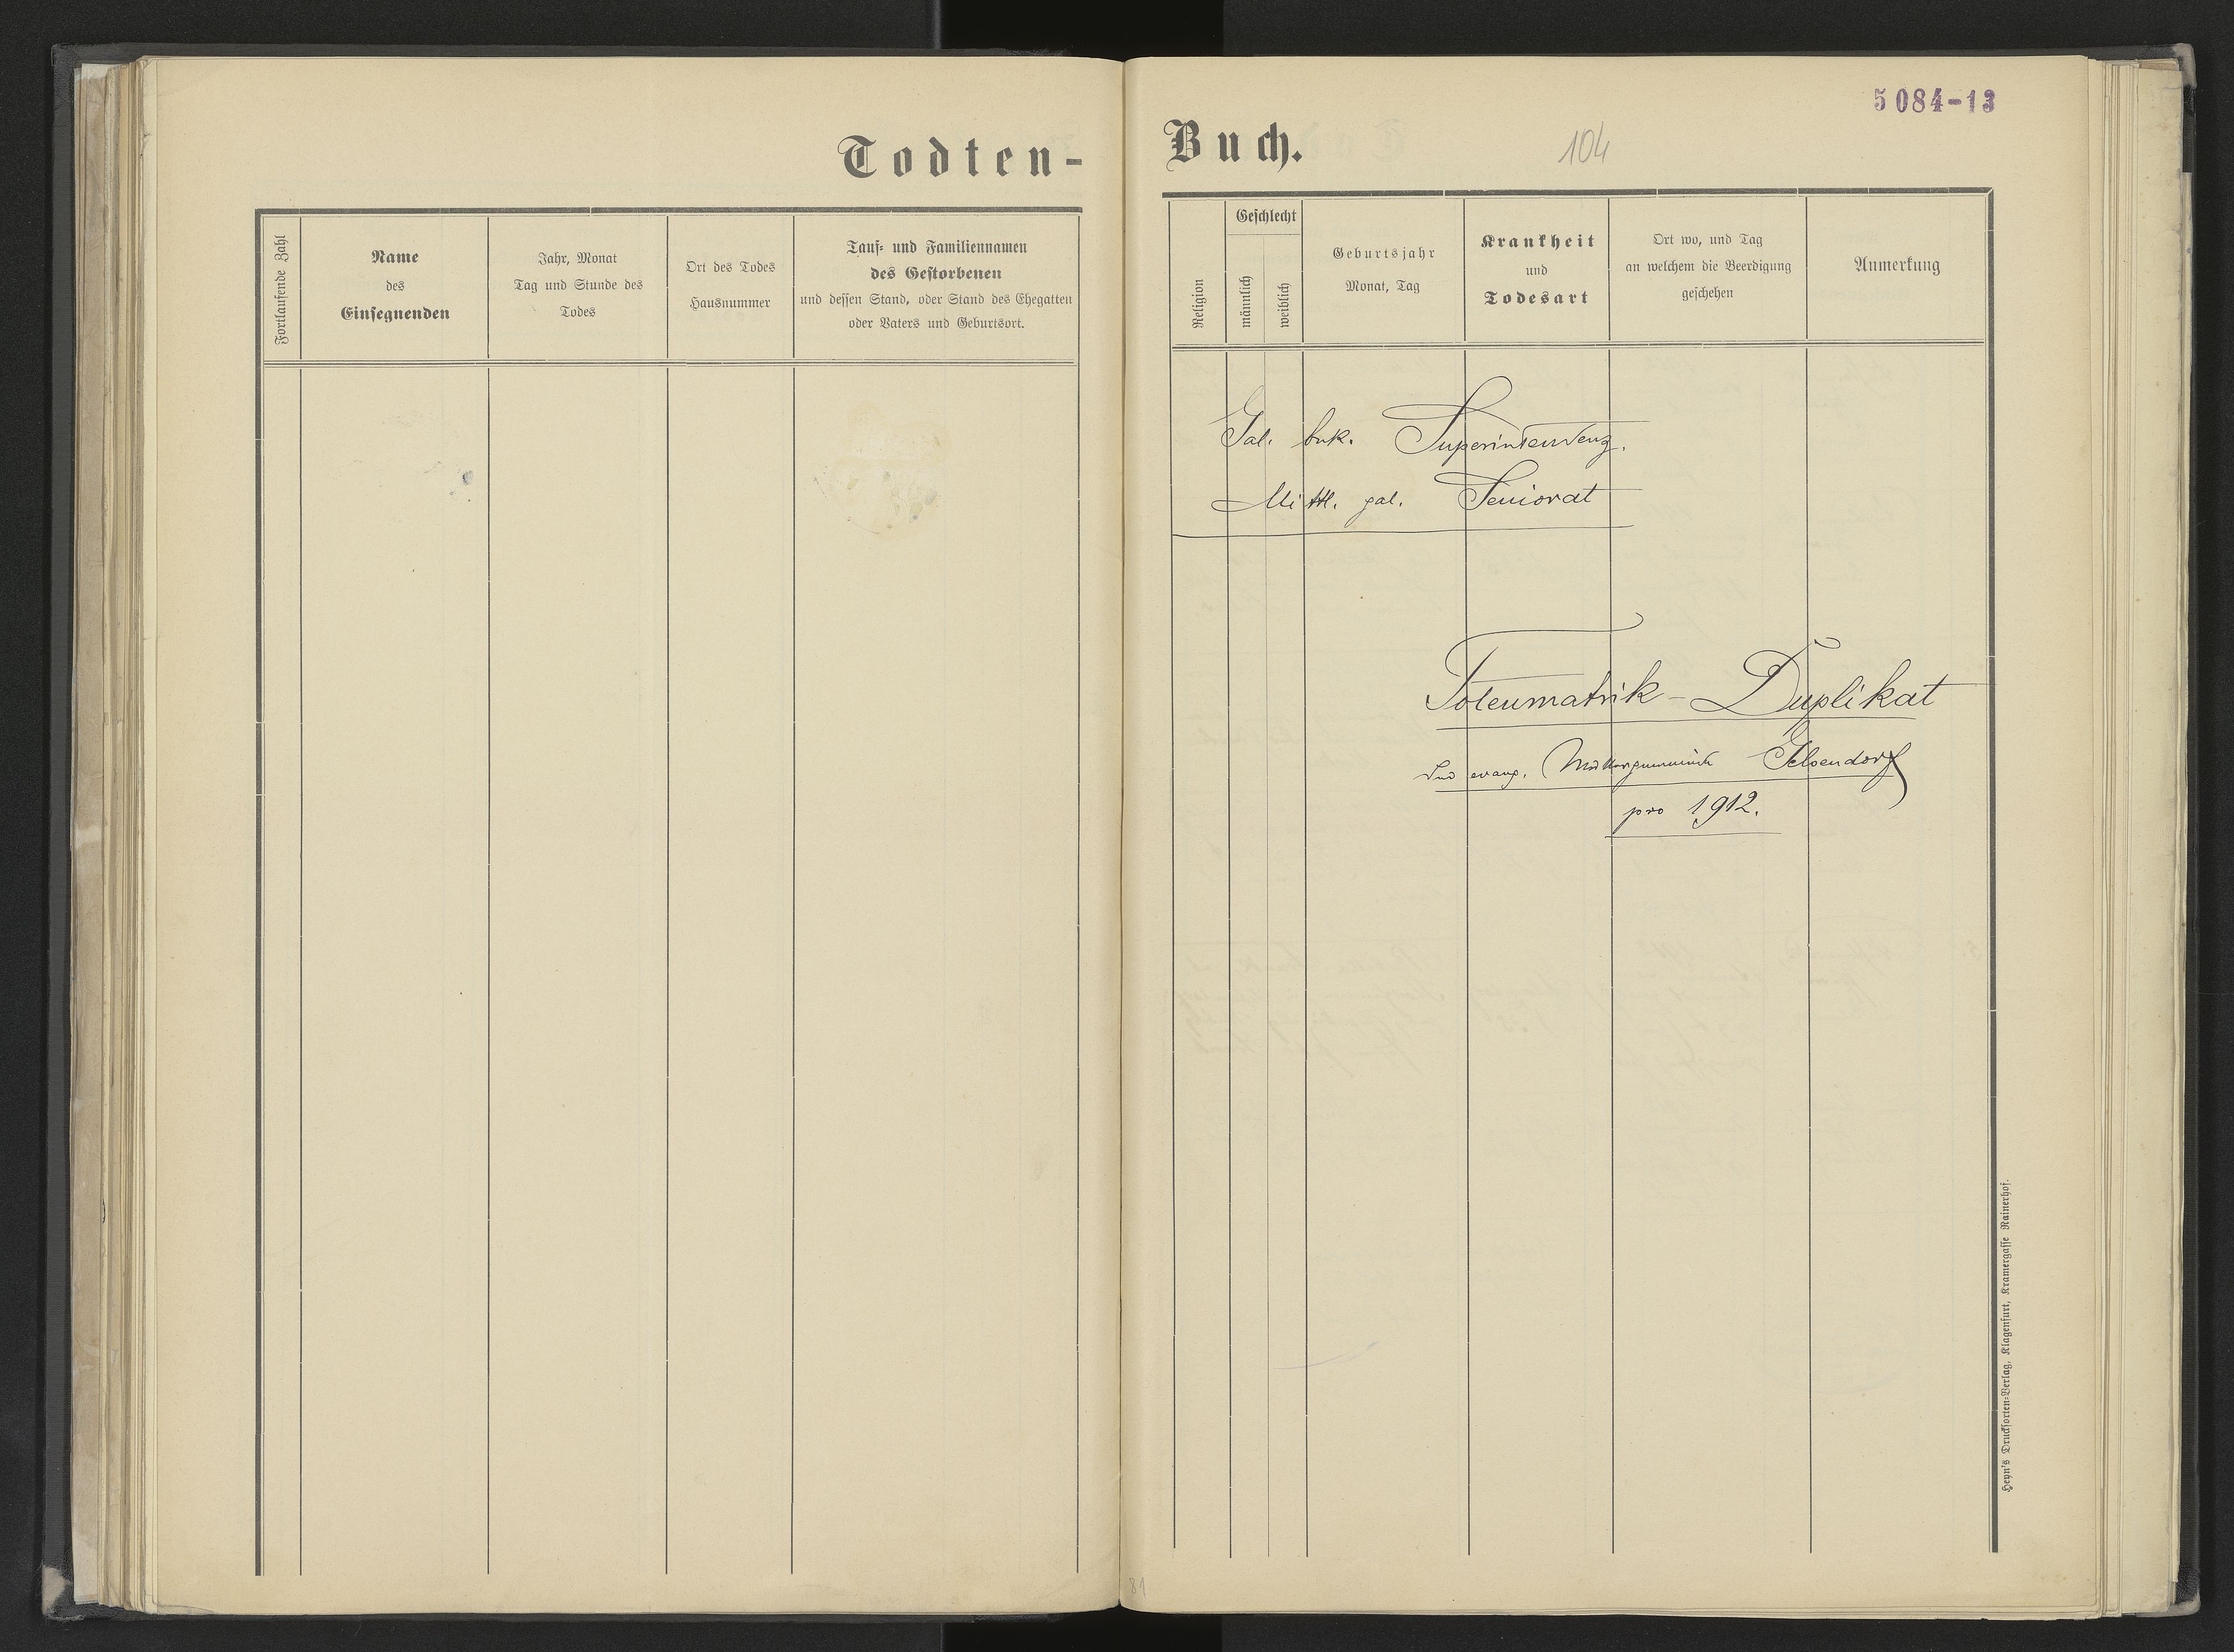 5084-13
104
Todten-
Buch.
Fortlaufende Zahl
Name
des
Einsegnenden
Jahr, Monat
Tag und Stunde des
Todes
Ort des Todes
Hausnummer
Tauf- und Familiennamen
des Gestorbenen
und dessen Stand, oder Stand des Ehegatten
oder Vaters und Geburtsort.
Religion
Geschlecht
männlich
weiblich
Geburtsjahr
Monat, Tag
Krankheit
und
Todesart
Ort wo, und Tag
an welchem die Beerdigung
geschehen
Anmerkung
Gal. buk. Superintendenz.
Mittl. gal. Seniorat
Totenmatrik-Duplikat
der evang. Muttergemeinde Gelsendorf
pro 1912.
Heyn's Drucksorten-Verlag, Klagenfurt, Kramergasse Rainerhof.
81